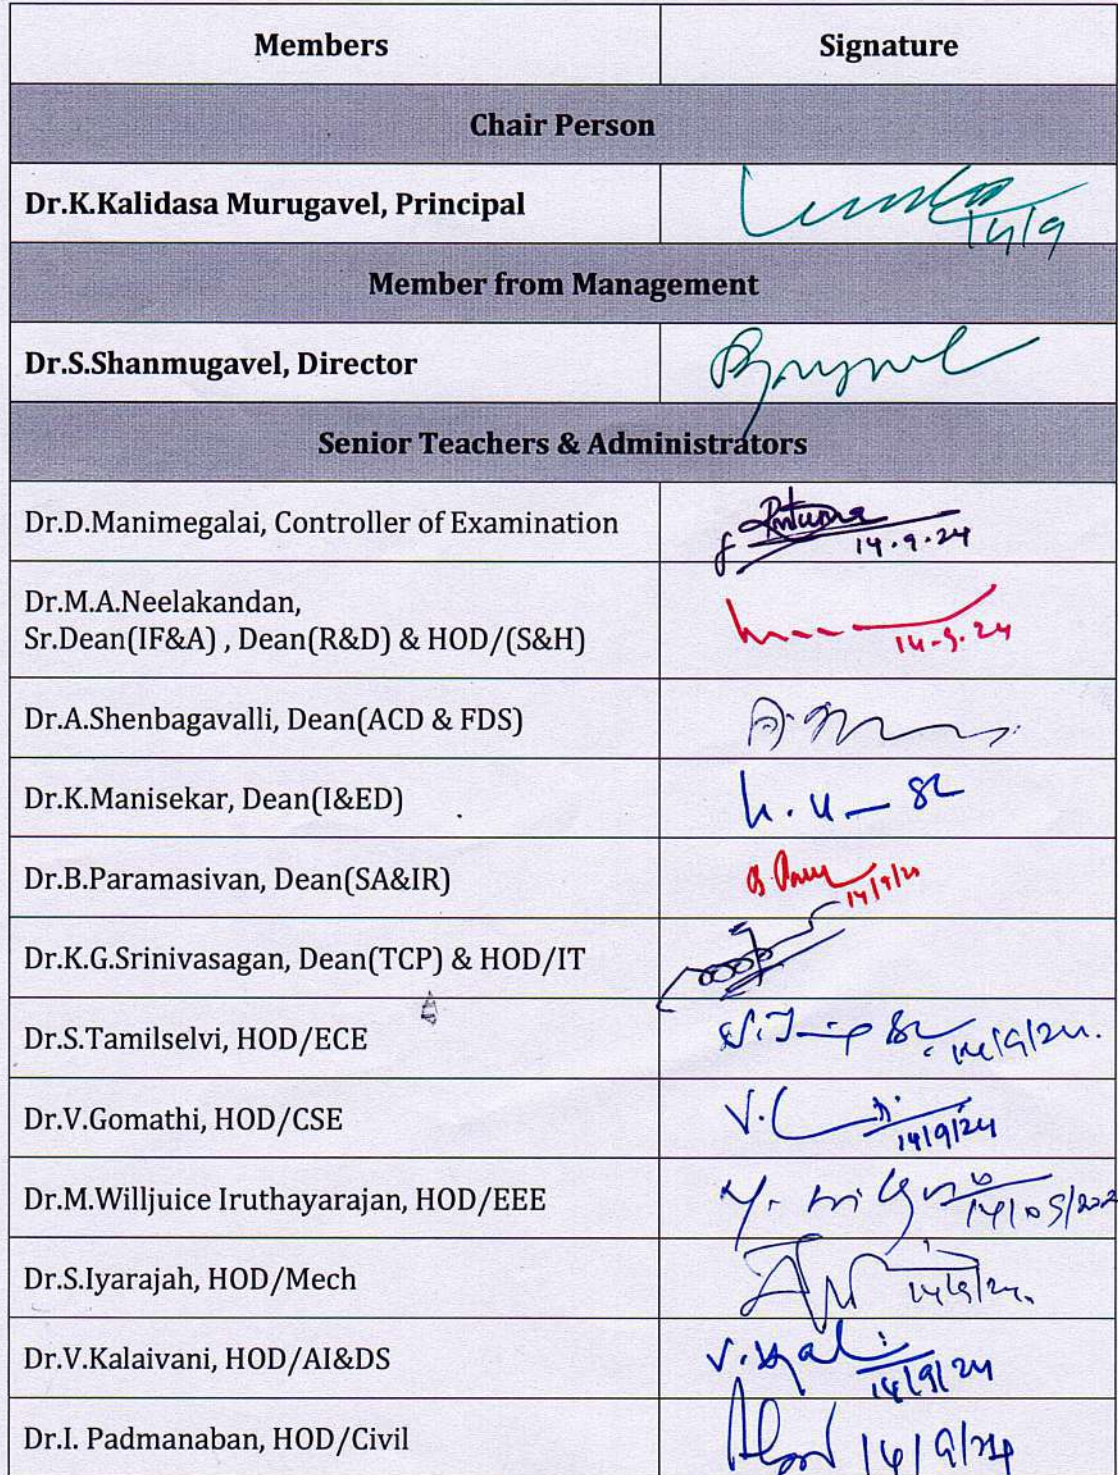 Members Signature
Chair Person
Dr.K.Kalidasa Murugavel, Principal
14/9
Member from Management
Dr.S.Shanmugavel, Director
Senior Teachers & Administrators
Dr.D.Manimegalai, Controller of Examination
14.9.24
Dr.M.A.Neelakandan,
Sr.Dean(IF&A) , Dean(R&D) & HOD/(S&H)
14-9-24
Dr.A.Shenbagavalli, Dean(ACD & FDS)
Dr.K.Manisekar, Dean(I&ED)
Dr.B.Paramasivan, Dean(SA&IR)
Dr.K.G.Srinivasagan, Dean(TCP) & HOD/IT
Dr.S.Tamilselvi, HOD/ECE
14/9/24.
Dr.V.Gomathi, HOD/CSE
14/9/24
Dr.M.Willjuice Iruthayarajan, HOD/EEE
Dr.S.Iyarajah, HOD/Mech
14/9/24.
Dr.V.Kalaivani, HOD/AI&DS
14/9/24
Dr.I. Padmanaban, HOD/Civil
14/9/24